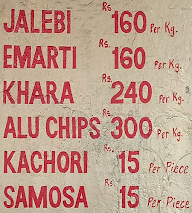 JALEBI Rs 160 Per Kg.
EMARTI Rs. 160 Per Kg.
KHARA Rs. 240 Per Kg.
ALU CHIPS Rs. 300 Per Kg.
KACHORI Rs. 15 Per Piece
SAMOSA Rs. 15 Per Piece